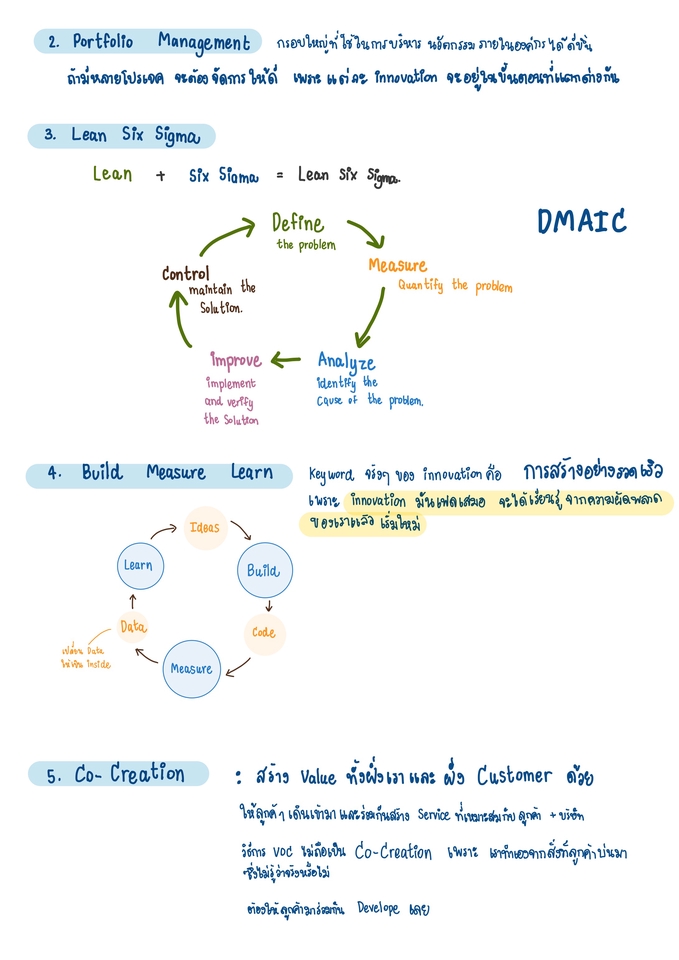 2. Portfolio Management กรอบใหญ่ที่ใช้ในการบริหาร นวัตกรรม ภายในองค์กร ได้ดีขึ้น
ถ้ามีหลายโปรเจค จะต้องจัดการให้ดี เพราะ แต่ละ innovation จะอยู่ในขั้นตอนที่แตกต่างกัน
3. Lean Six Sigma
Lean + Six Sigma = Lean Six Sigma.
DMAIC
Define
the problem
Measure
Quantify the problem
Analyze
identify the
cause of the problem.
improve
implement
and verify
the Solution
Control
maintain the
Solution.
4. Build Measure Learn
Keyword จริงๆ ของ innovation คือ การสร้างอย่างรวดเร็ว
เพราะ innovation มันเฟลเสมอ จะได้เรียนรู้ จากความผิดพลาด
ของเราแล้ว เริ่มใหม่
Ideas
Build
Code
Measure
Data
Learn
เปลี่ยน Data
ให้เป็น inside
5. Co-Creation : สร้าง Value ทั้งฝั่งเรา และ ฝั่ง Customer ด้วย
ให้ลูกค้าเดินเข้ามา และร่วมกันสร้าง Service ที่เหมาะสมกับ ลูกค้า + บริษัท
วิธีการ VOC ไม่ถือเป็น Co-Creation เพราะ เราทำเองจากสิ่งที่ลูกค้าบ่นมา
ซึ่งไม่รู้ว่าจริงหรือไม่
ต้องให้ลูกค้ามาร่วมกัน Develope เลย